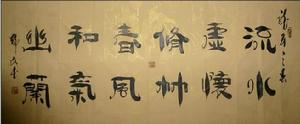 流水
虛懷
脩竹
春風
和氣
幽蘭